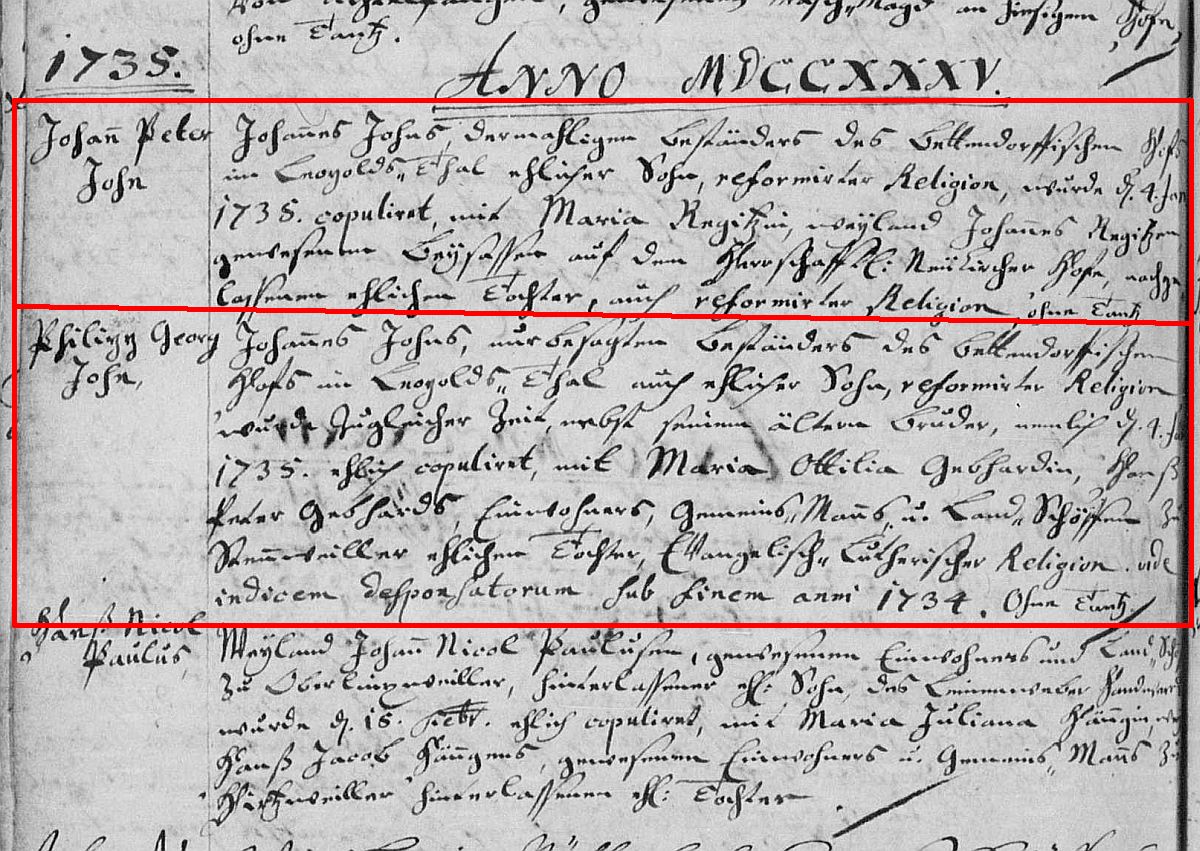 ohne Tantz.
1735.
ANNO MDCCXXXV.
Johañ Peter
John
Johannes Johns, dermahligen Beständers des Bettendorffischen Hofs
im Leopolds-Thal ehlicher Sohn, reformirter Religion, wurde d. 4. Jan
1735. copuliret, mit Maria Regitzin, weyland Johannes Regitzen
gewesenen Beysassen auf dem Herrschafftl: Neükircher Hofe, nachge
lassenen ehlichen Tochter, auch reformirter Religion, ohne Tantz
Philipp Georg
John,
Johannes Johns, nurbesagten Beständers des Bettendorffischen
Hofs im Leopolds-Thal auch ehlicher Sohn, reformirter Religion
wurde zugleicher Zeit, nebst seinem ältern Bruder, nemlich d. 4. Ja
1735. ehlich copuliret, mit Maria Ottilia Gebhardin, Hanß
Peter Gebhards, Einwohners, Gemeins-Manns, u. Land-Schöffen zu
Stennweiller ehlichen Tochter, Evangelisch-Lutherischer Religion. vide
indicem desponsatorum sub finem anni 1734. Ohne Tantz
Hanß Nicol
Paulus,
Weyland Johañ Nicol Paulusen, gewesenen Einwohners und Land-Schö
zu Oberlinxweiller, hinterlassener ehl: Sohn, des Leinenweber Handwercks
wurde d. 15. Febr. ehlich copuliret, mit Maria Juliana
Hanß Jacob gewesenen Einwohners u. Gemeins-Manns zu
Hirtzweiller hinterlassenen ehl: Tochter.